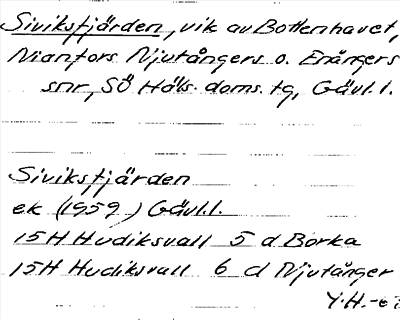 Siviksfjärden, vik av Bottenhavet,
Nianfors Njutångers o. Enångers
snr, SÖ Häls. doms. tg, Gävl. l.
Siviksfjärden
ek (1959) Gävl.l.
15H Hudiksvall 5 d Borka
15H Hudiksvall 6 d Njutånger
Y.H.-